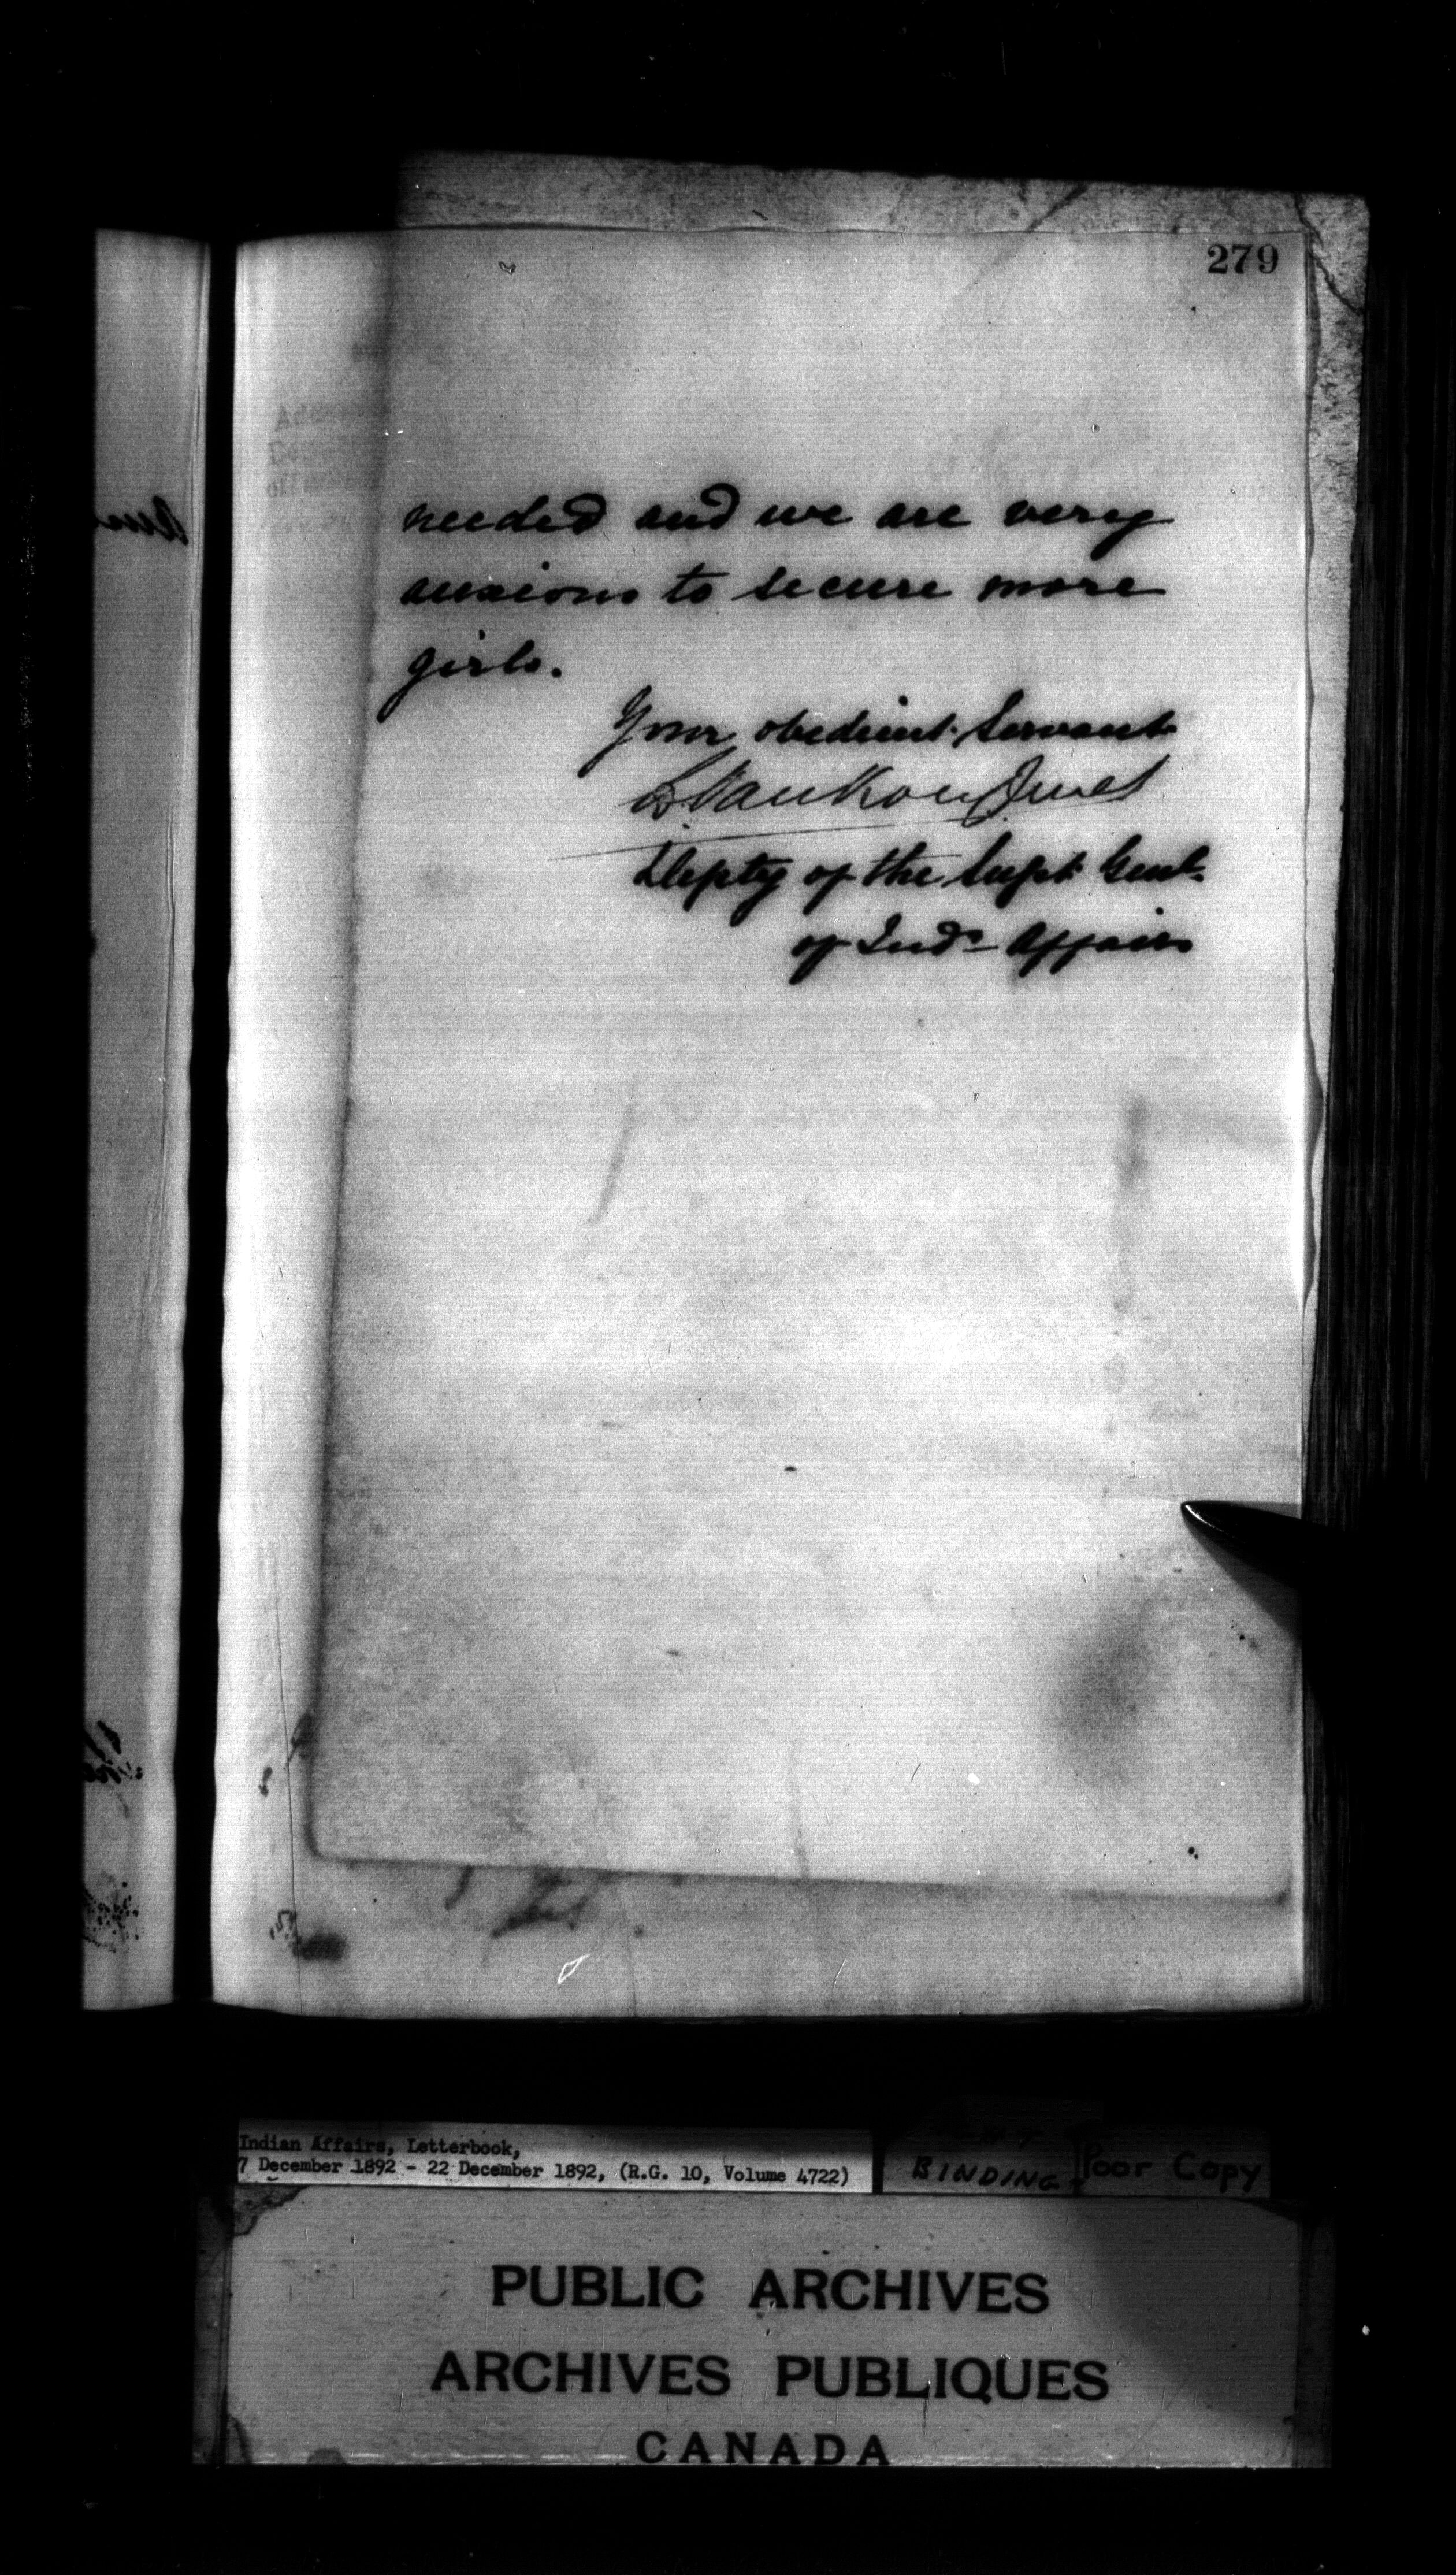 279
needed and we are very
anxious to secure more
girls.
Your obedient Servant
L VanKoughnet
Depty of the Supt Genl.
of Inds Affairs
Indian Affairs, Letterbook,
7 December 1892 - 22 December 1892, (R.G. 10, Volume 4722)
BINDING
Poor Copy
PUBLIC ARCHIVES
ARCHIVES PUBLIQUES
CANADA